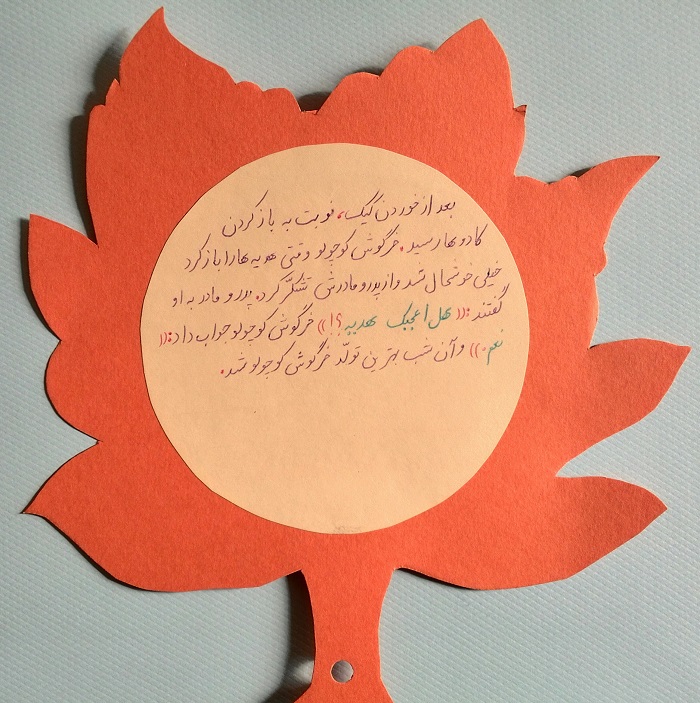 بعد از خوردن کیک، نوبت به باز کردن
کادوها رسید. خرگوش کوچولو وقتی هدیه ها را باز کرد
خیلی خوشحال شد و از پدر و مادرش تشکّر کرد. پدر و مادر به او
گفتند: «هل اعجبک هدیه؟!» خرگوش کوچولو جواب داد: «
نعم.» و آن شب بهترین تولّد خرگوش کوچولو شد.